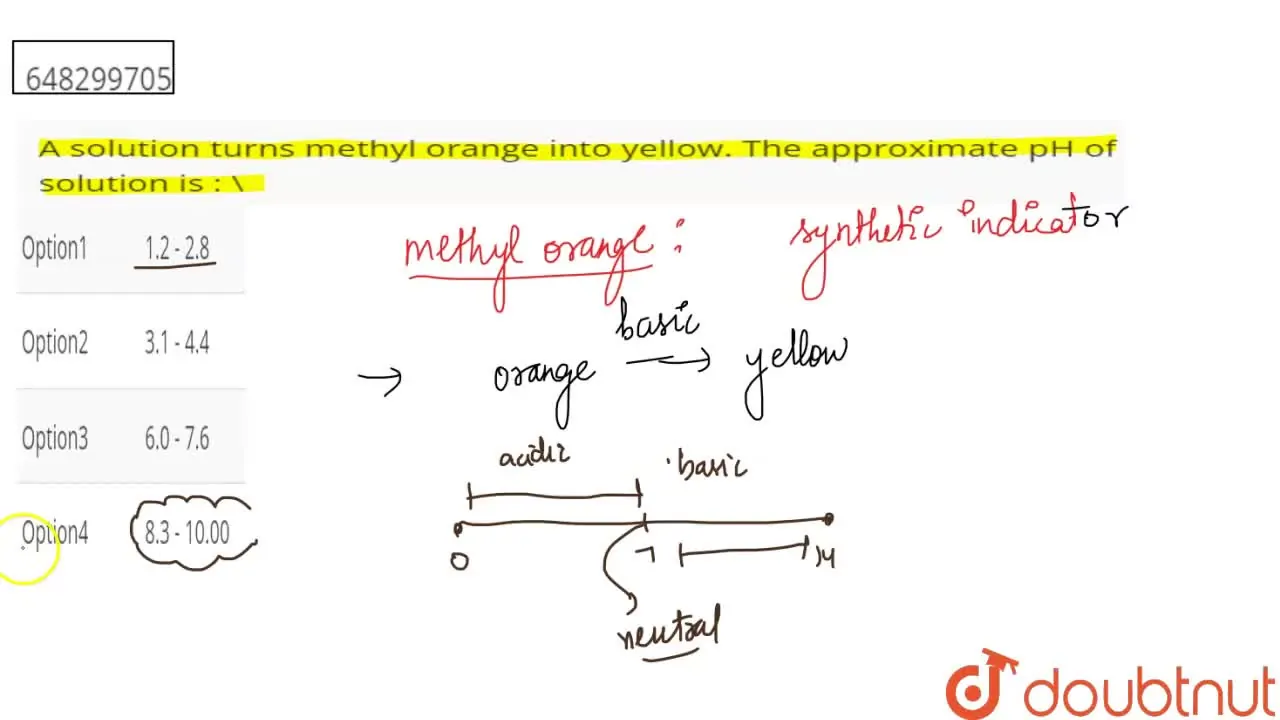 648299705
A solution turns methyl orange into yellow. The approximate pH of
solution is : \
Option1 1.2 - 2.8
methyl orange : synthetic indicator
basic
Option2 3.1 - 4.4
orange → yellow
Option3 6.0 - 7.6
acidic basic
Option4 8.3 - 10.00
0 7 14
neutral
doubtnut